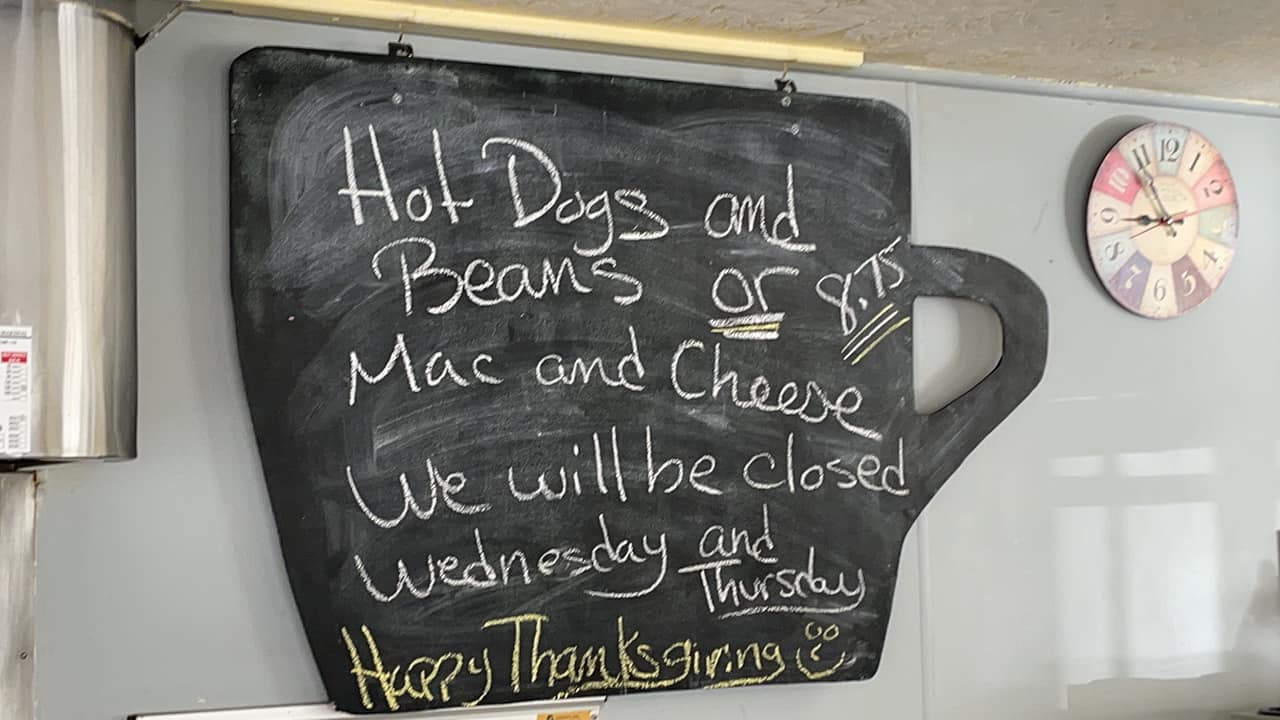 Hot Dogs and
Beans or 8.75
Mac and Cheese
We will be closed
Wednesday and
Thursday
Happy Thanksgiving
12
1
4
5
6
7
8
9
10
11